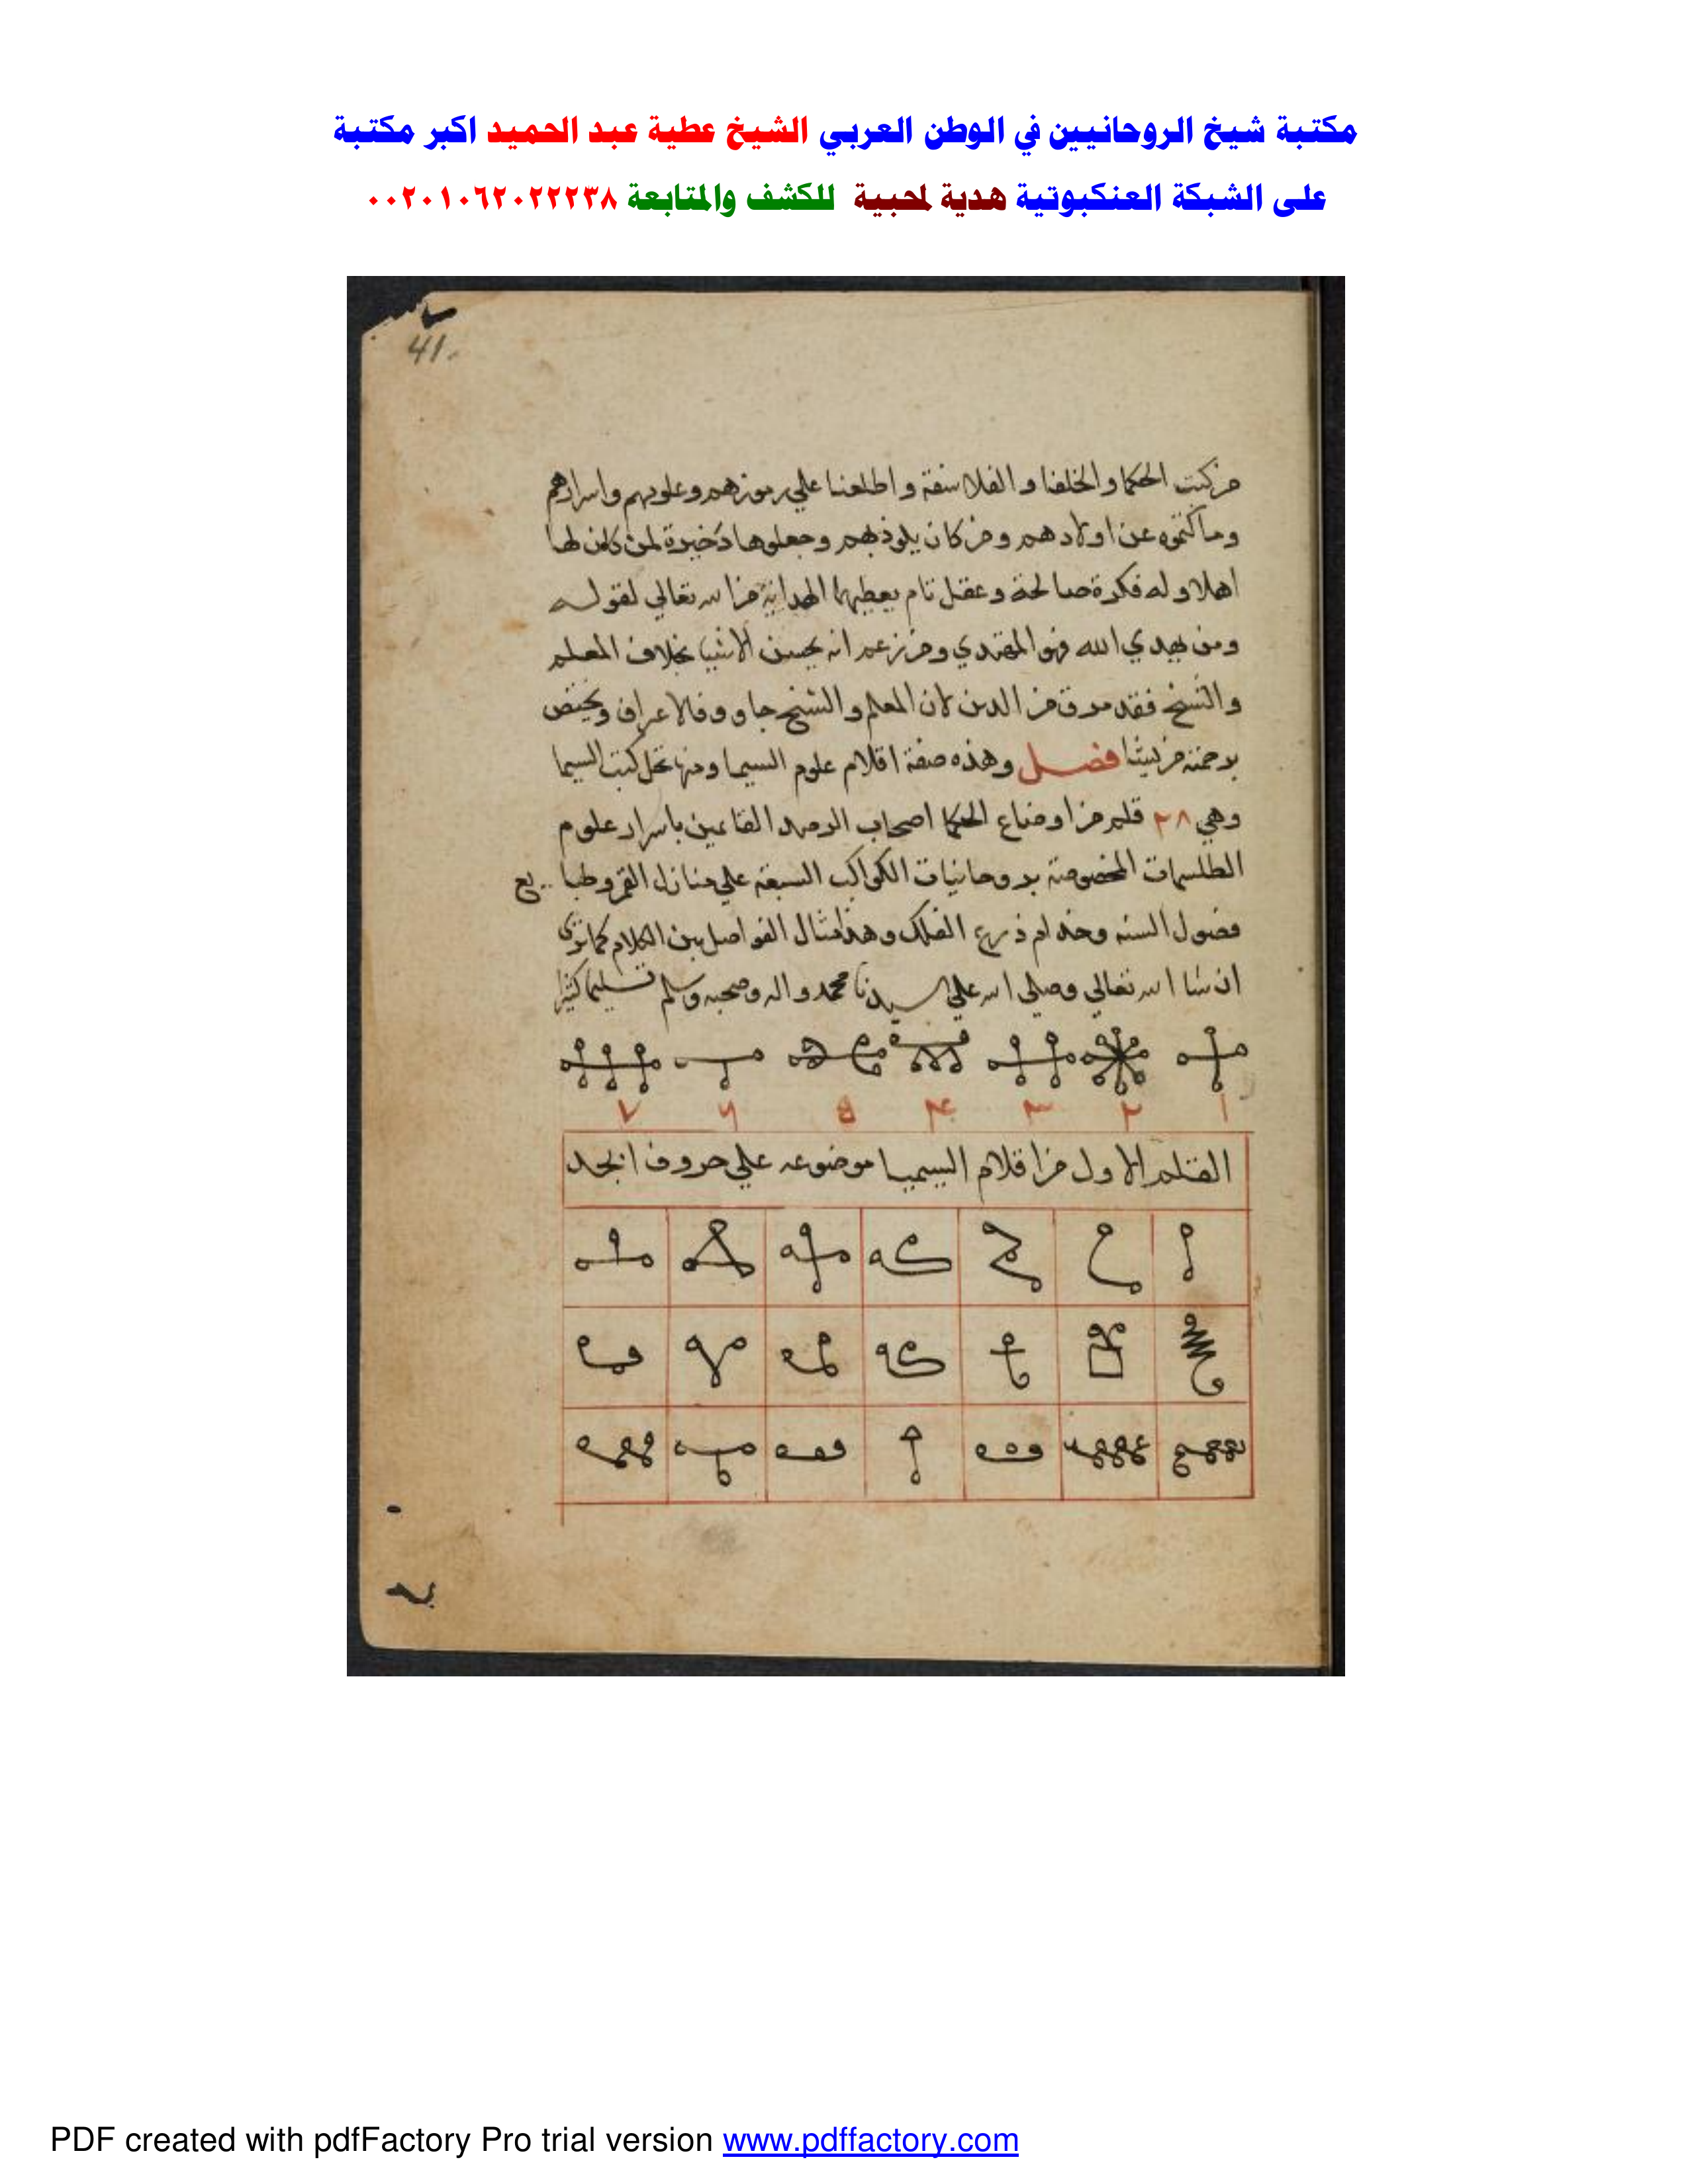 مكتبة شيخ الروحانيين في الوطن العربي الشيخ عطية عبد الحميد اكبر مكتبة
على الشبكة العنكبوتية هدية لمحبية للكشف والمتابعة ٠٠٢٠١٠٦٢٠٢٢٢٣٨
41.
من كتب الحكما والخلفا والفلاسفة واطلعنا علي رموزهم وعلومهم واسرارهم
وما كتموه عن اولادهم ومن كان يلوذ بهم وجعلوها دخيرة لمن كان لها
اهلا وله فكرة صالحة وعقل تام الهداية من الله تعالي لقوله
ومن يهدي الله فهو المهتدي ومن زعم انه يحسن الاشيا بخلاف المعلم
والشيخ فقد مرق من الدين لان المعلم والشيخ
فصل وهذه صفة اقلام علوم السيميا ومنها تحل كتب السيميا
وهي ٢٨ قلم من اوضاع الحكما اصحاب الرصد القائمين باسرار علوم
الطلسمات المخصوصة بروحانيات الكواكب السبعة علي منازل القمر وطبايع
فصول السنه وخدام الفلك وهذا مثال الفواصل بين الكلام كما تري
ان شا الله تعالي وصلي الله علي سيدنا محمد واله وصحبه وسلم تسليما كثيرا
١ ٢ ٣ ٤ ٥ ٦ ٧
القلم الاول من اقلام السيميا موضوعه علي حروف ابجد
PDF created with pdfFactory Pro trial version www.pdffactory.com